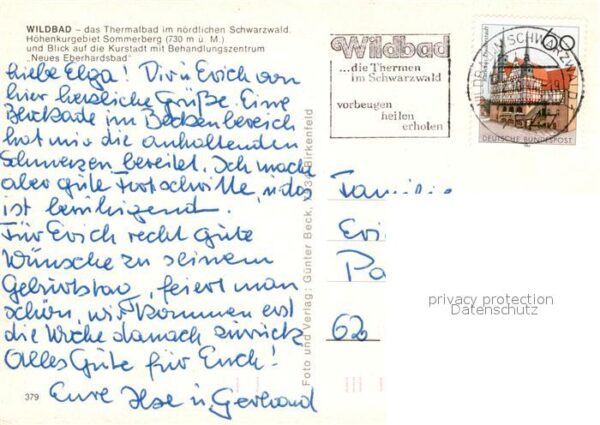 WILDBAD – das Thermalbad im nördlichen Schwarzwald.
Höhenkurgebiet Sommerberg (730 m ü. M.)
und Blick auf die Kurstadt mit Behandlungszentrum
„Neues Eberhardsbad"
Liebe Elga! Dir u Erich von
hier herzliche Grüße. Eine
Blockade im Beckenbereich
hat mir die anhaltenden
Schmerzen bereitet. Ich mache
aber gute Fortschritte, u das
ist beruhigend.
Für Erich recht gute
Wünsche zu seinem
Geburtstag, feiert man
schön, wir kommen erst
die Woche danach zurück
Alles Gute für Euch!
Eure Ilse u Gerhard
379
Foto und Verlag: Günter Beck, Birkenfeld
Wildbad
...die Thermen
im Schwarzwald
vorbeugen
heilen
erholen
60
DEUTSCHE BUNDESPOST
Familie
Eri
Pa
62
privacy protection
Datenschutz